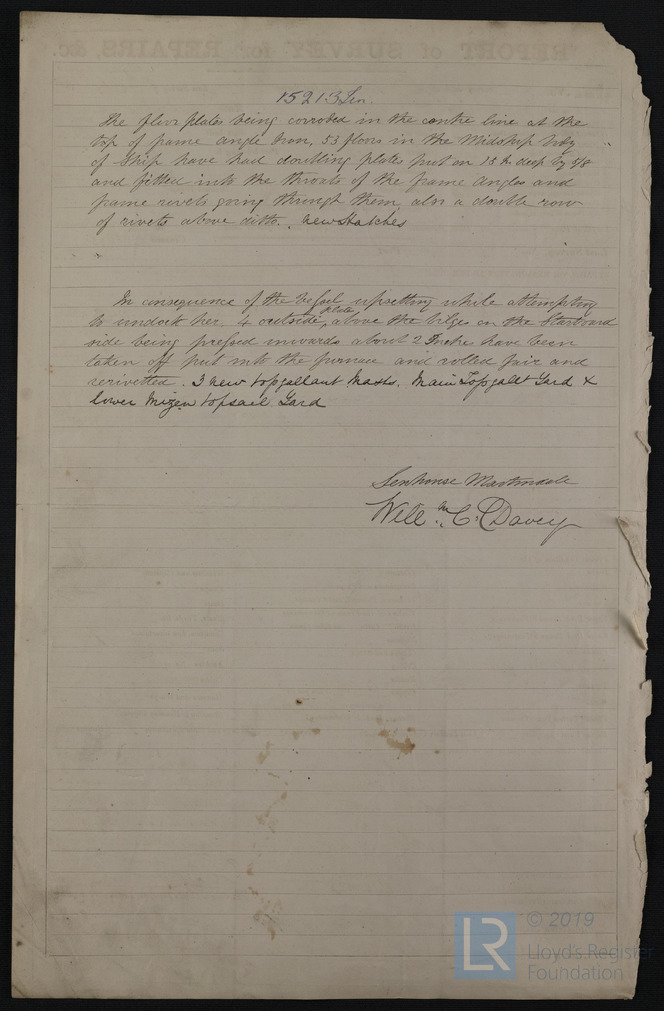 15213 Lon.
The floor plates being corroded in the centre line at the
top of frame angle Iron, 53 floors in the Midship body
of Ship have had doubling plates put on 15 In deep by 5/8
and fitted into the throats of the frame Angles and
frame rivets going through them, also a double row
of rivets above ditto. New Hatches
In consequence of the Vessel upsetting while attempting
to undock her. 4 outside plates above the bilges on the Starboard
side being pressed inwards about 2 Inches have been
taken off put into the furnace and rolled fair and
rerivetted. 3 new topgallant Masts. Main Topgallt Yard &
lower Mizen topsail Yard
Senhouse Martindale
Willm. C. Davey
REPORT of SURVEY for REPAIRS, &c.
LR
© 2019
Lloyd's Register
Foundation